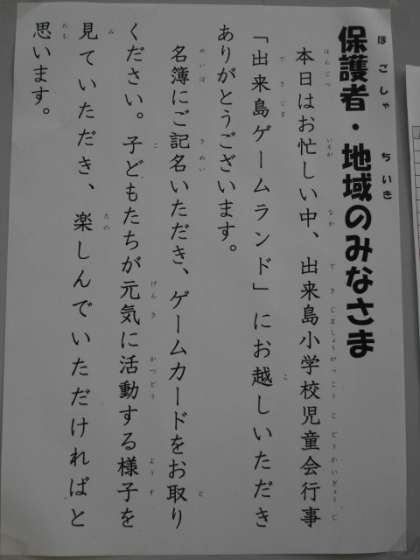 保護者・地域のみなさま
本日はお忙しい中、出来島小学校児童会行事
「出来島ゲームランド」にお越しいただき
ありがとうございます。
名簿にご記名いただき、ゲームカードをお取り
ください。子どもたちが元気に活動する様子を
見ていただき、楽しんでいただければと
思います。